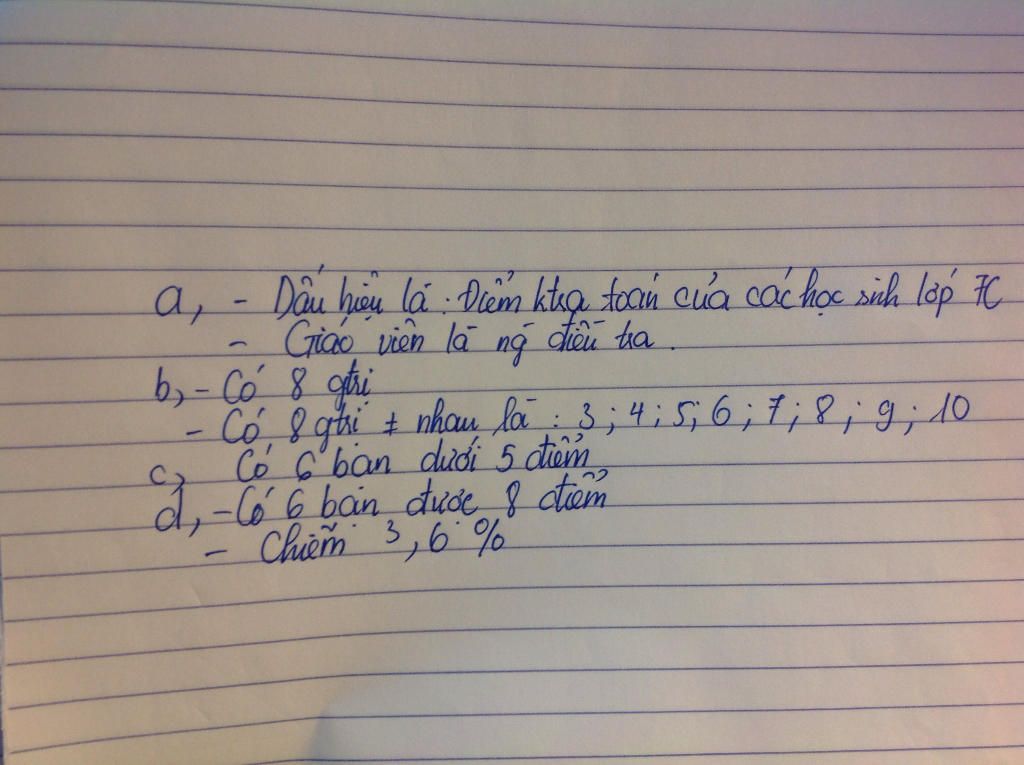 a, - Dấu hiệu là : Điểm ktra toán của các học sinh lớp 7C
- Giáo viên là ng điều tra .
b, - Có 8 gtrị
- Có 8 gtrị ≠ nhau là : 3 ; 4 ; 5 ; 6 ; 7 ; 8 ; 9 ; 10
c, Có 6 bạn dưới 5 điểm
d, - Có 6 bạn được 8 điểm
- Chiếm 3,6 %